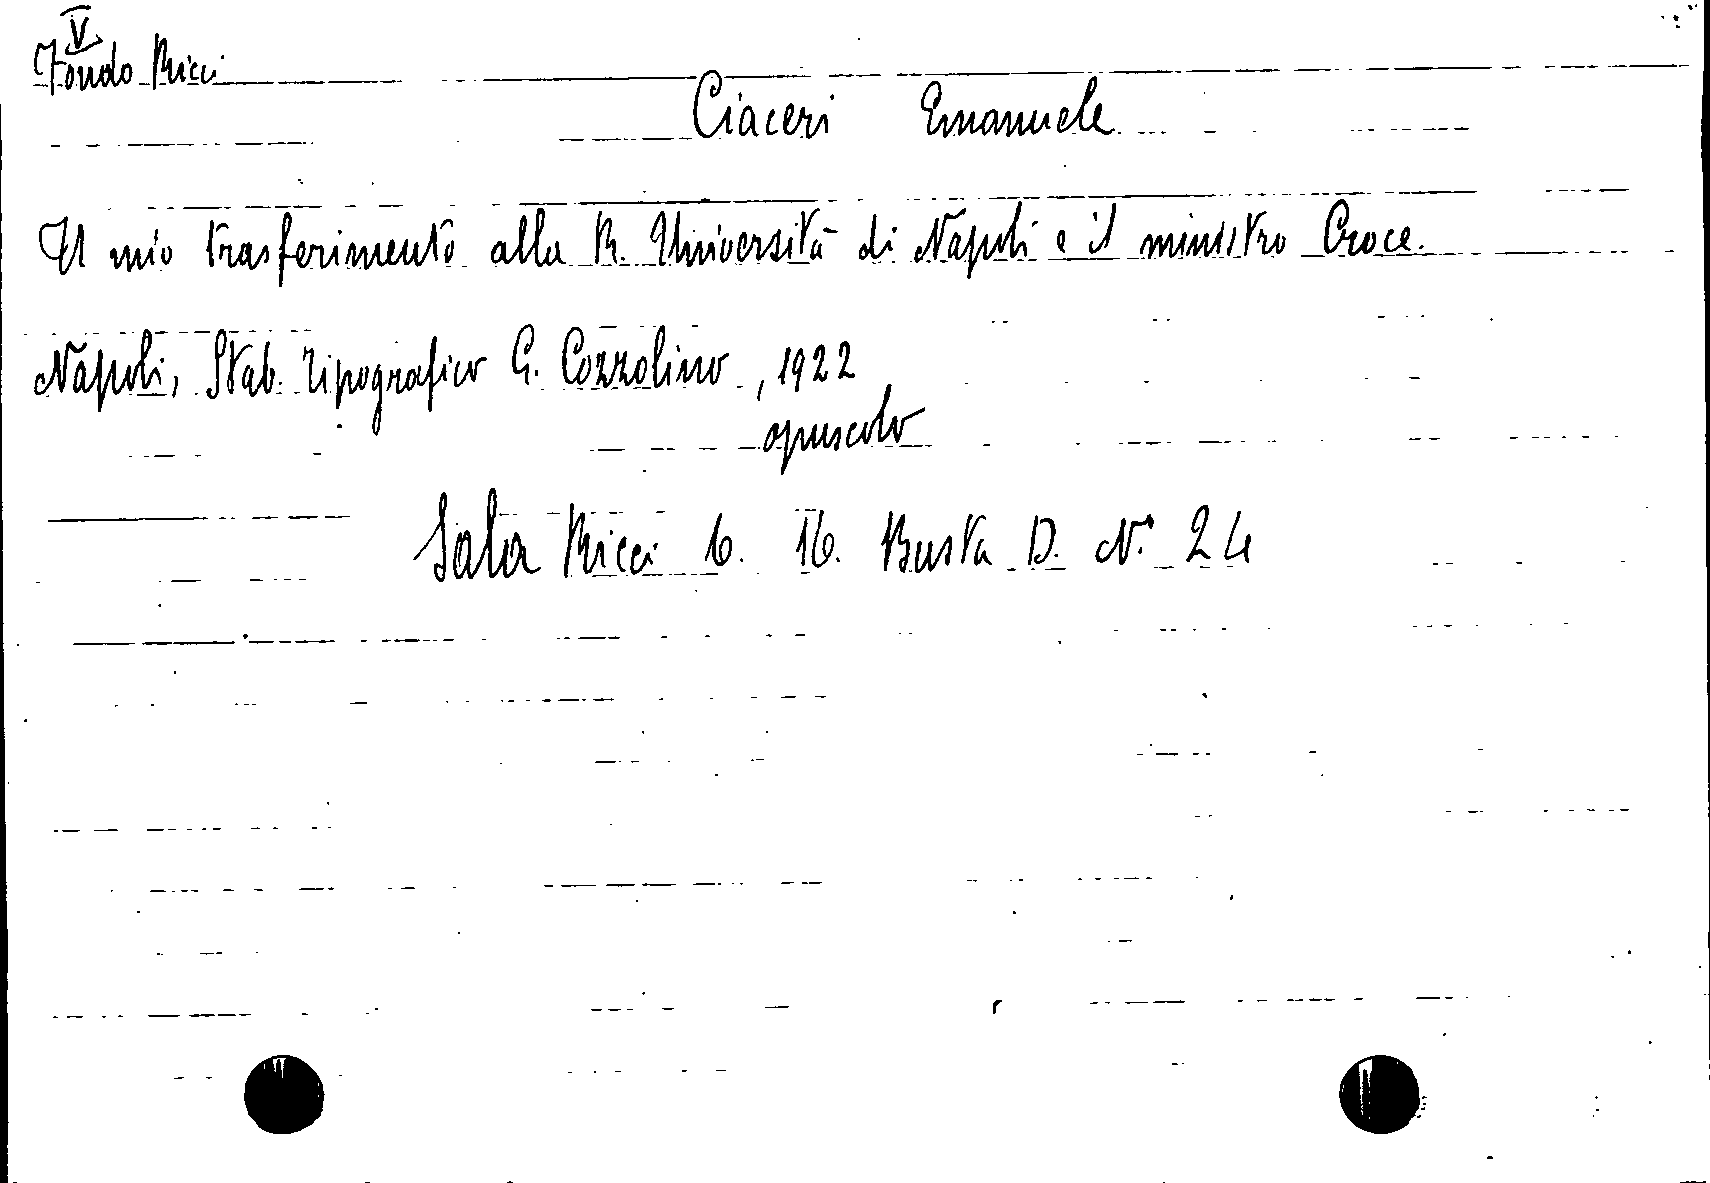 V
Fondo Ricci
Ciaceri Emanuele
Il mio trasferimento alla R. Università di Napoli e il ministro Croce.
Napoli, Stab. Tipografico G. Cozzolino, 1922
opuscolo
Sala Ricci 6. 16. Busta D. N. 24